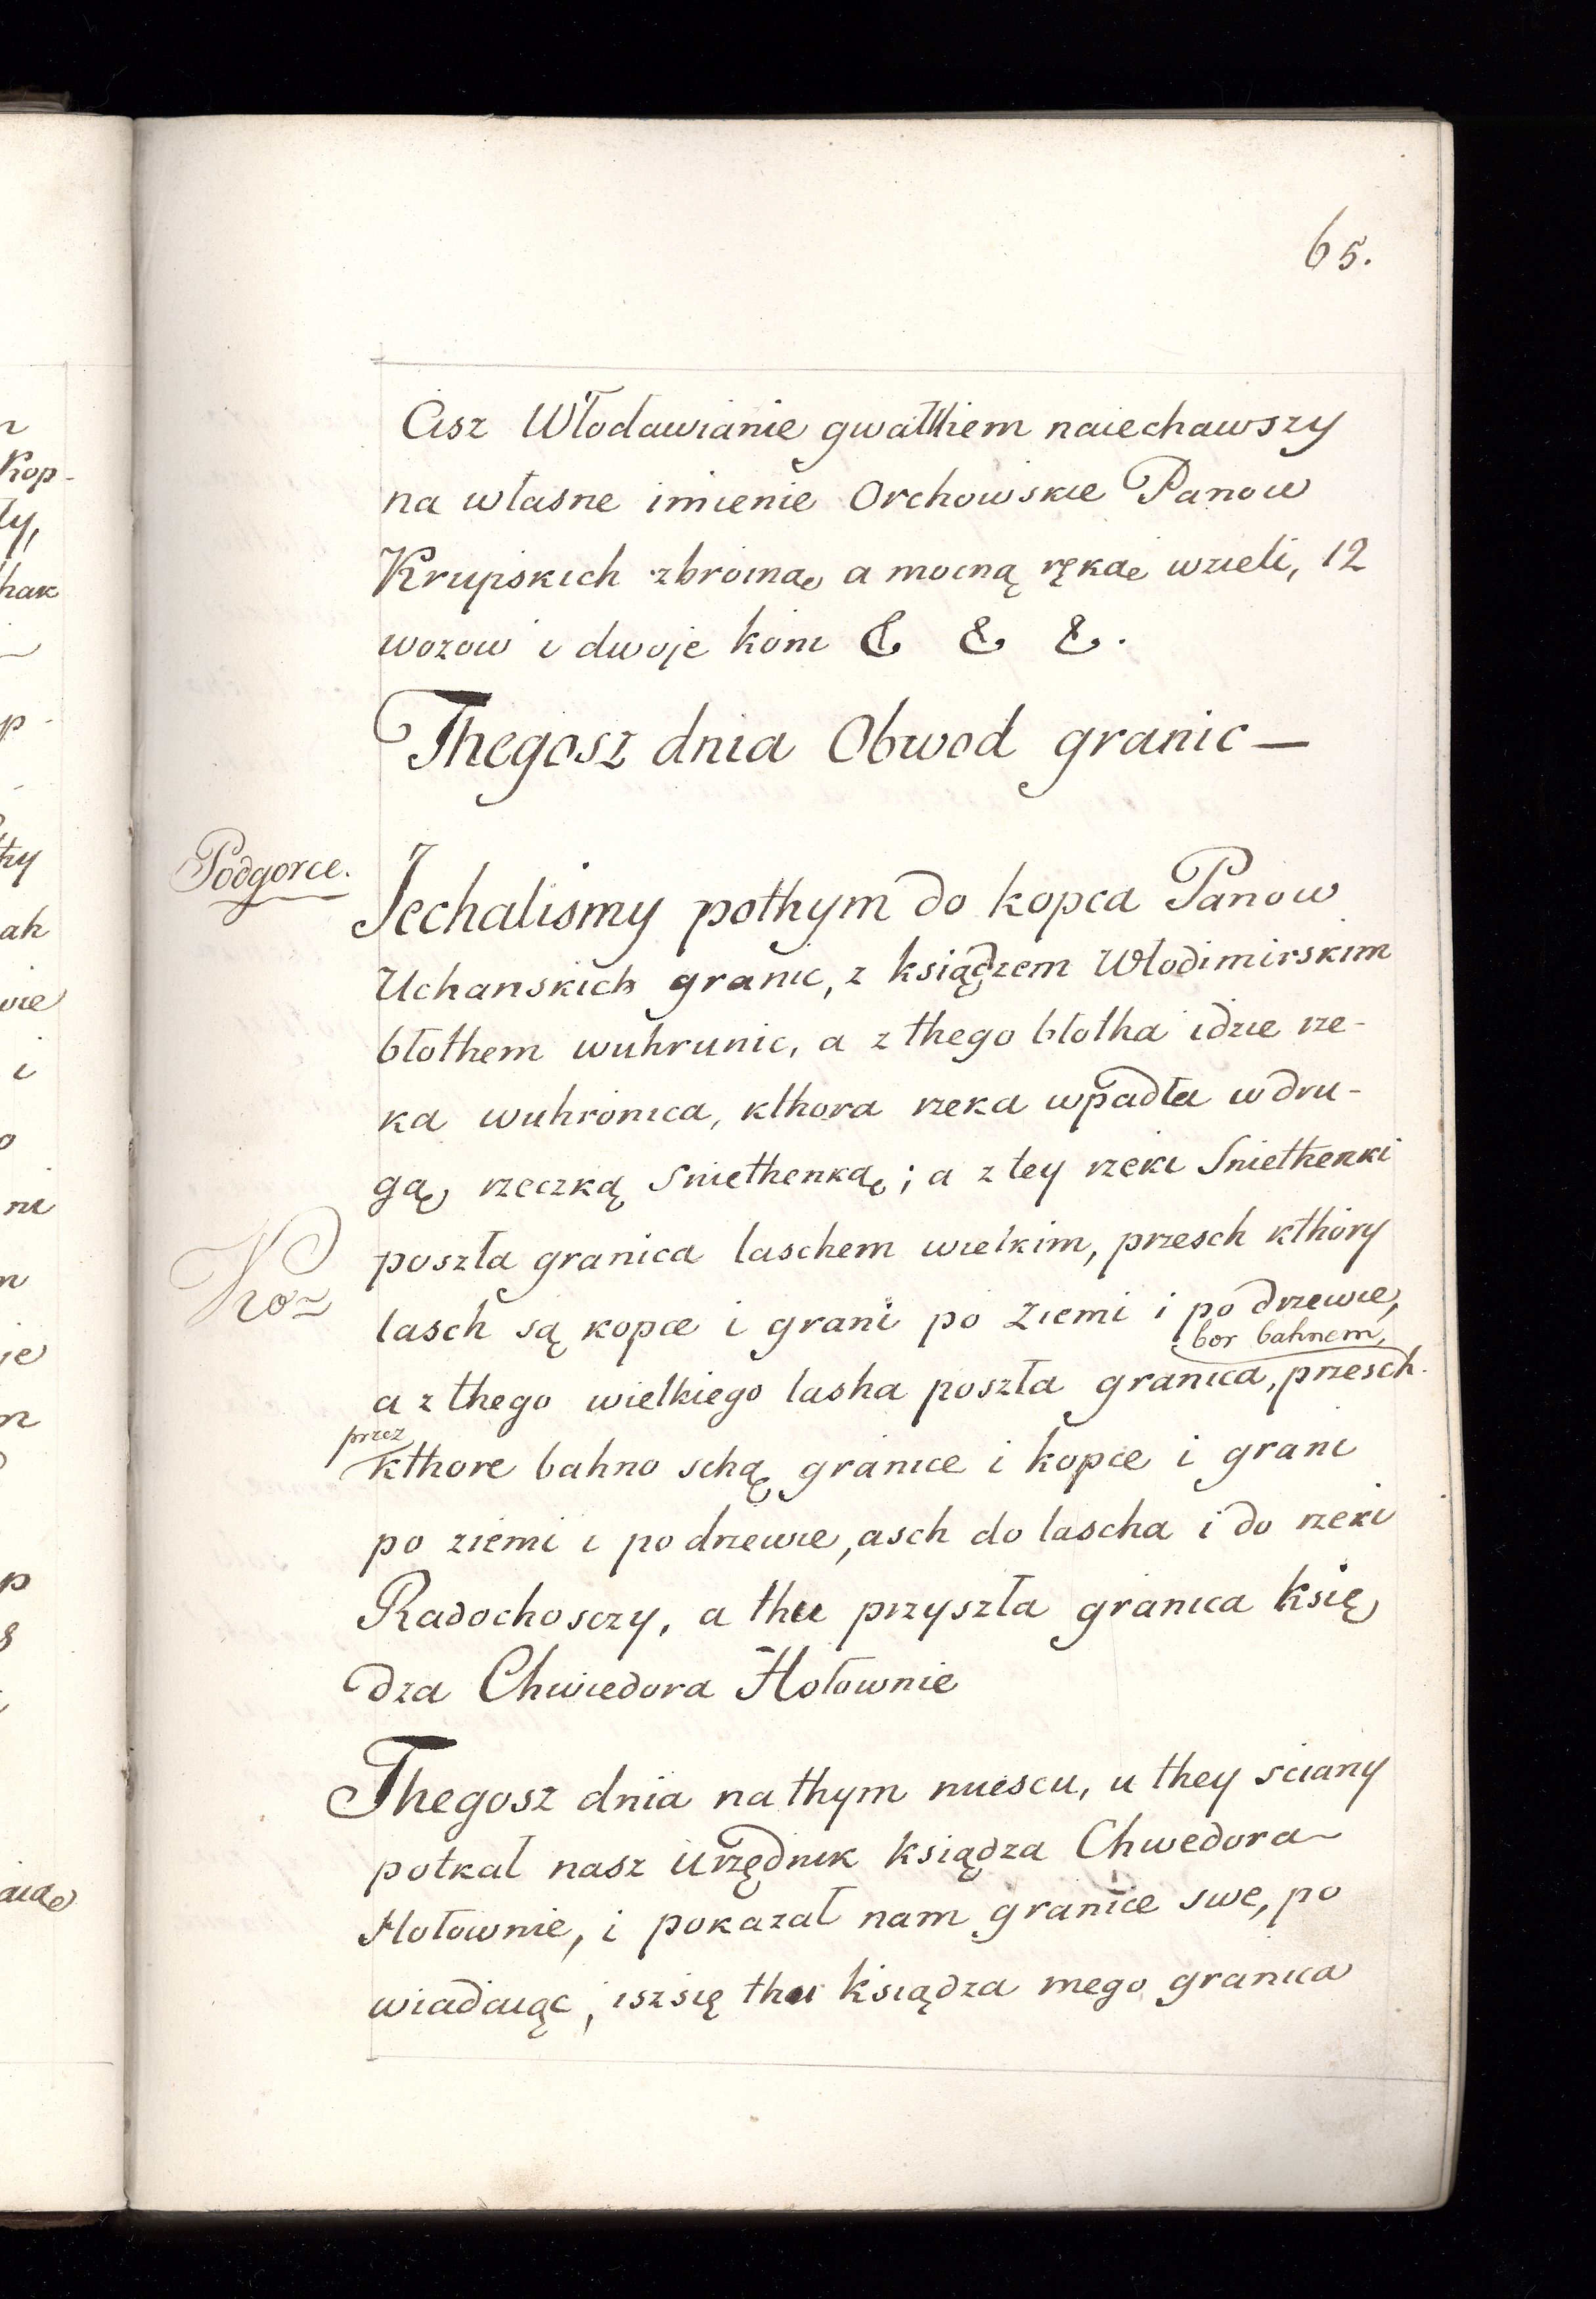 65.
Cisz Włodawianie gwałthem naiechawszy
na własne imienie Orchowskie Panow
Krupskich zbroiną a mocną ręką wzieli, 12
wozow i dwoje koni & & &.
Thegosz dnia Obwod granic —
Podgorce.
Jechalismy pothym do kopca Panow
Uchanskich granic, z ksiądzem Włodimirskim
błothem wuhrunic, a z thego błotha idzie rze-
ka wuhronica, kthora rzeka wpadła w dru-
gą rzeczką Sniethenką; a z tey rzeki Sniethenki
poszła granica laschem wielkim, przesch kthory
lasch są kopce i grani po ziemi i po drzewie,
bor bahnem,
a z thego wielkiego lasha poszła granica, przesch
przez
kthore bahno schą granice i kopce i grani
po ziemi i po drzewie, asch do lascha i do rzeki
Radochosczy, a thu przyszła granica księ
dza Chwiedora Hołownie
Thegosz dnia na thym miescu, u they sciany
potkał nasz urzędnik ksiądza Chwedora
Hołownie, i pokazał nam granice swe, po
wiadaiąc, isz się thu ksiądza mego granica